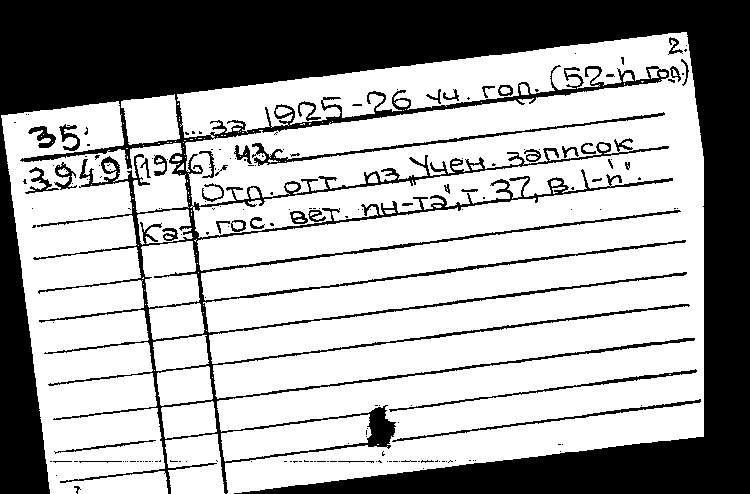 2.
35. ...за 1925-26 уч. год. (52-й год)
3949. [1926]. 43с.
„Отд. отт. из „Учен. записок
Каз. гос. вет. ин-та", т. 37, в. 1-й".